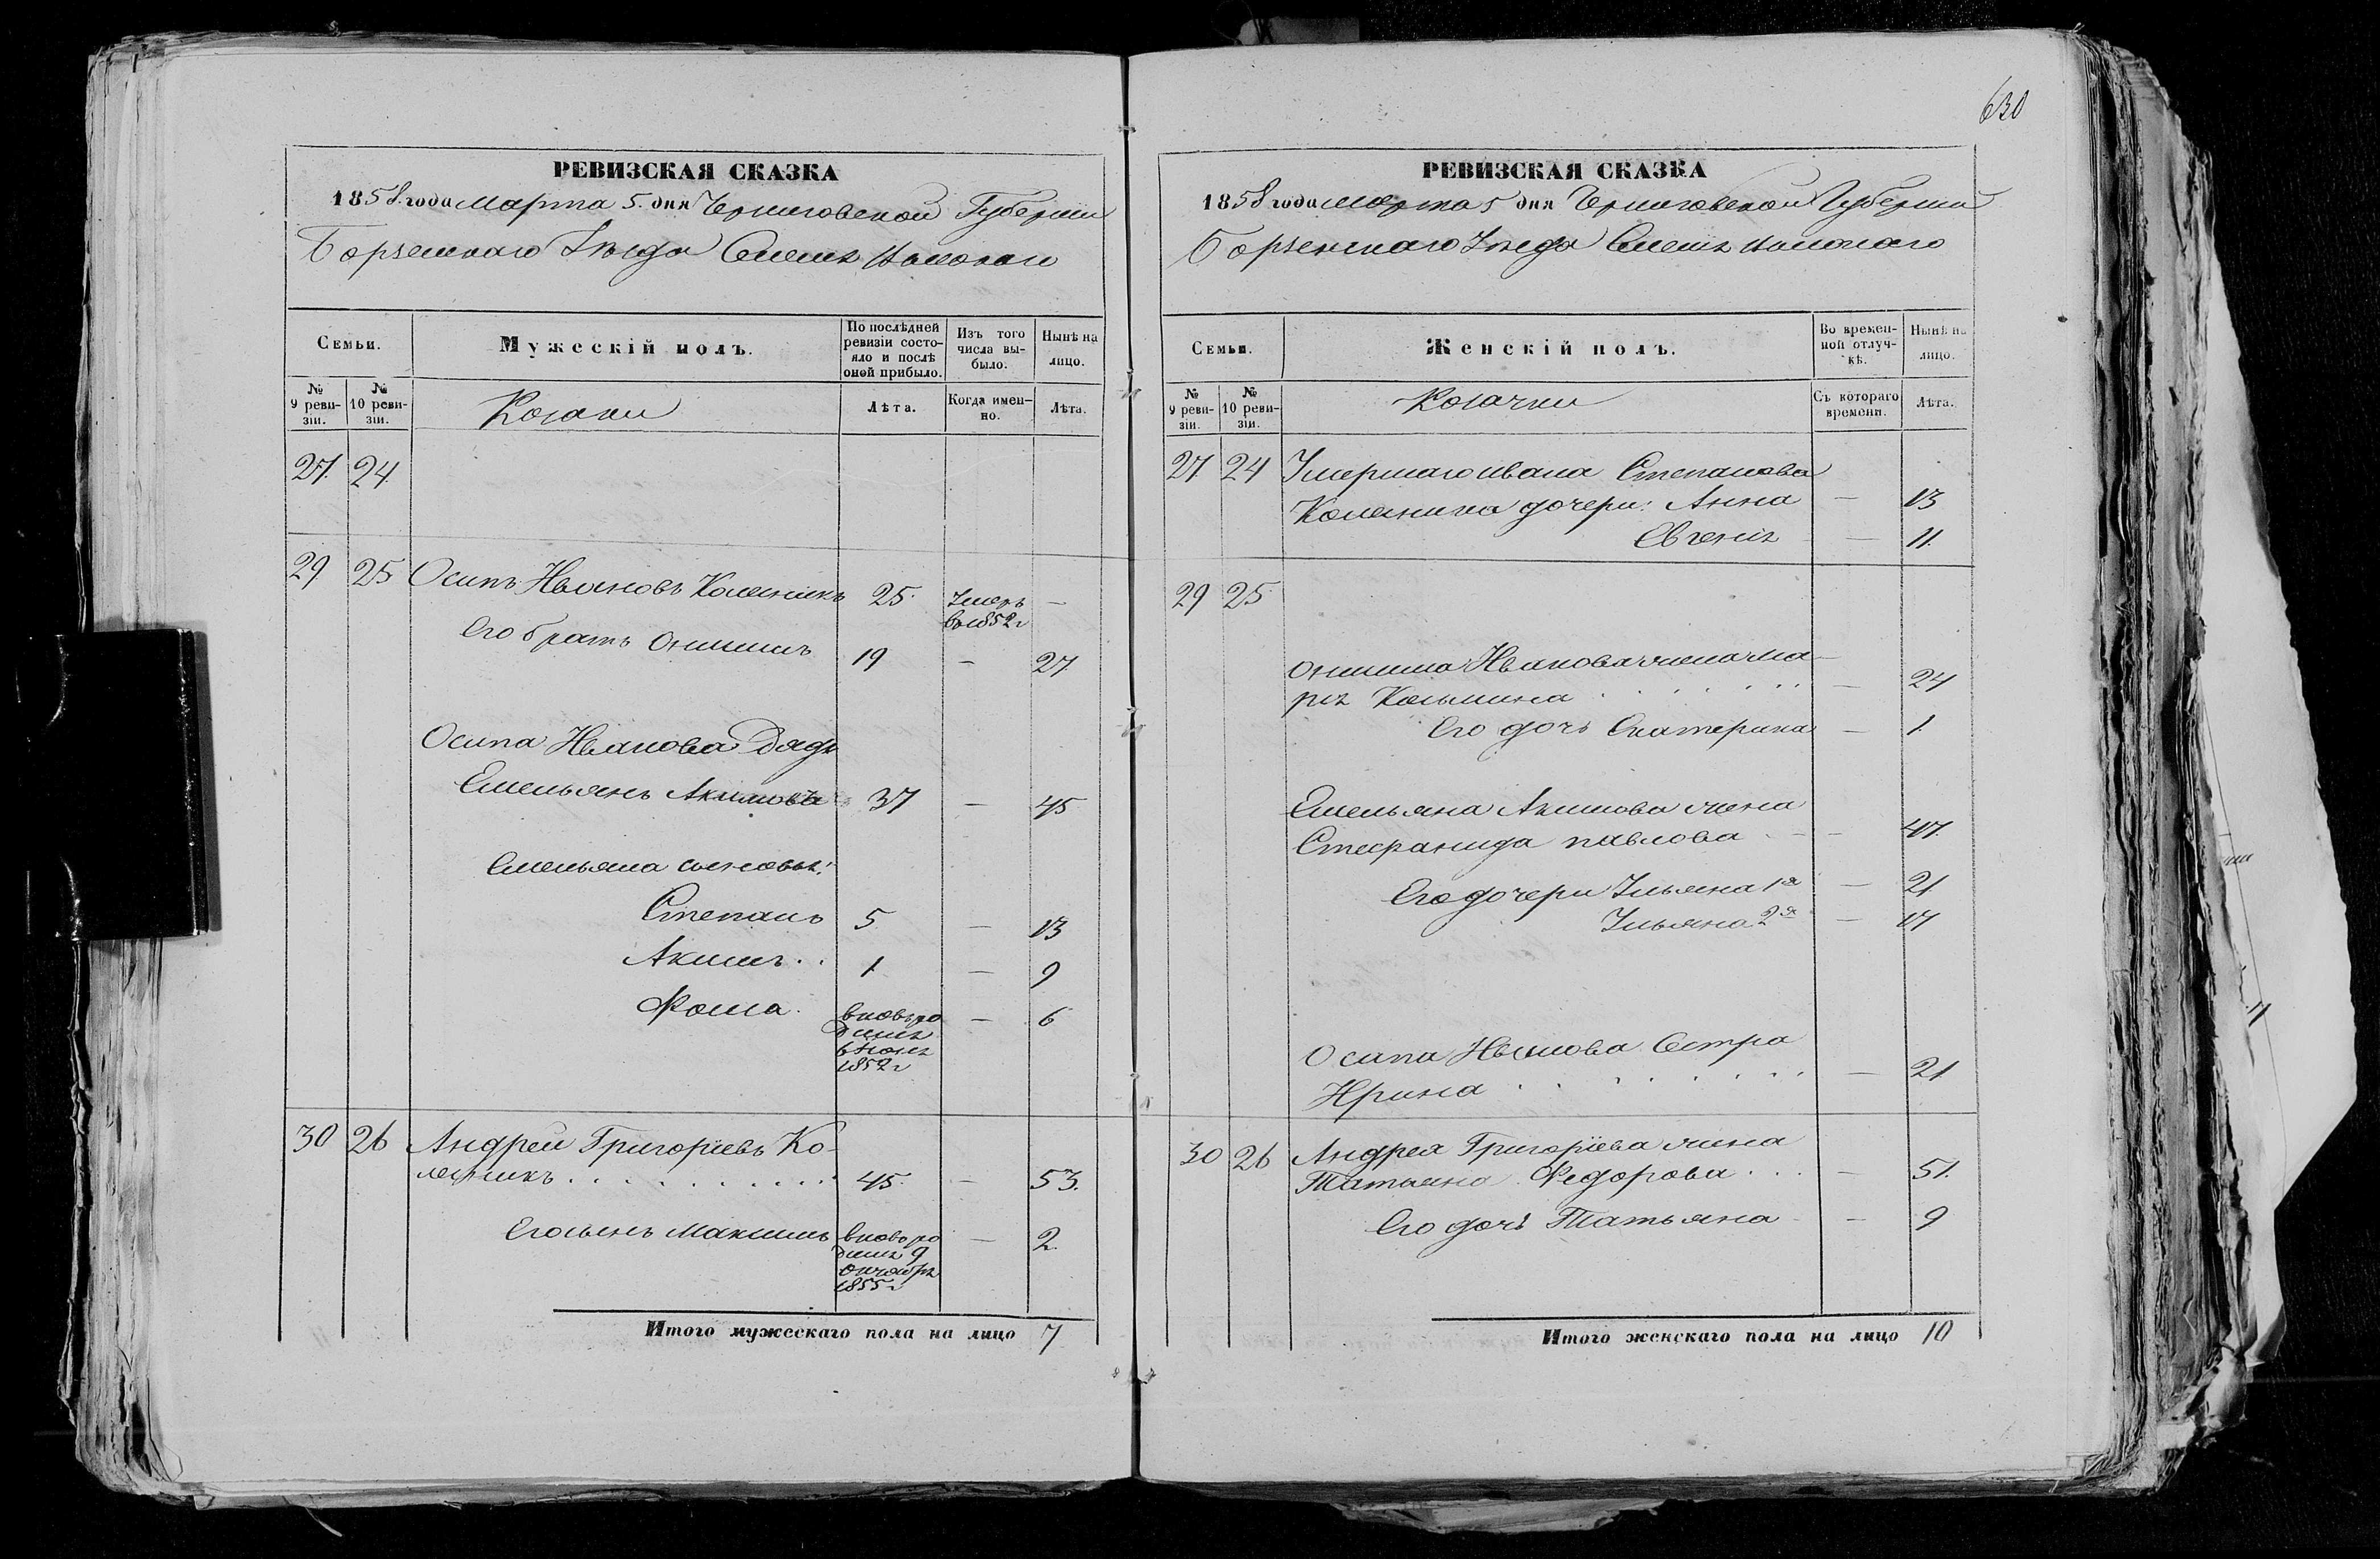 630
РЕВИЗСКАЯ СКАЗКА
1858 года Марта 5 дня Черниговской Губернии
Борзенскаго Уѣзда
Семьи.
Мужескій полъ.
По послѣдней ревизіи состояло и послѣ оной прибыло.
Изъ того числа выбыло.
Нынѣ на лицо.
№ 9 ревизіи.
№ 10 ревизіи.
Козаки
Лѣта.
Когда именно.
Лѣта.
27. 24.
29 25 Осипъ Ивановъ Колесникъ 25. Умеръ въ 1852 г —
Его братъ Онисимъ 19 — 27
Осипа Иванова Дядя
Емельянъ Акимовъ 37 — 45
Емельяна сыновья:
Степанъ 5 — 13
Акимъ . . 1 — 9
Фома. вновь ро
дился
въ Іюнѣ
1852 г — 6
30 26 Андрей Григоріевъ Ко-
лесникъ . . . . . . . . . . 45. — 53.
Его сынъ Максимъ вновь ро
дился 9
октября
1855 г — 2.
Итого мужескаго пола на лицо 7
РЕВИЗСКАЯ СКАЗКА
1858 года Марта 5 дня Черниговской Губернии
Борзенскаго Уѣзда
Семьи.
Женскій полъ.
Во временной отлучкѣ.
Нынѣ на лицо.
№ 9 ревизіи.
№ 10 ревизіи.
Козачки
Съ котораго времени.
Лѣта.
27 24 Умершаго Ивана Степанова
Колесника дочери: Анна — 13
Евгенія — 11.
29 25
Онисима Иванова жена Ма-
рія Козьмина . . . . . . — 24
Его дочь Екатерина — 1
Емельяна Акимова жена
Стефанида Павлова — 47.
Его дочери Ульяна 1я — 21
Ульяна 2я — 17
Осипа Иванова Сестра
Ирина . . . . . . . — 21
30 26 Андрея Григоріева жена
Татьяна Федорова . . . — 51.
Его дочь Татьяна — 9
Итого женскаго пола на лицо 10